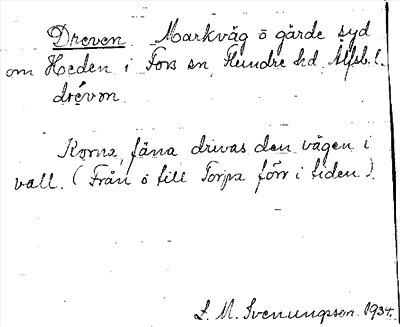 Dreven. Markväg ö gärde syd
om Heden i Fors sn, Flundre hd. Älfsb. l.
drévɒn.
Korna, fäna drivas den vägen i
vall. (Från ö till Torpa förr i tiden).
L. M. Svenungsson. 1934.